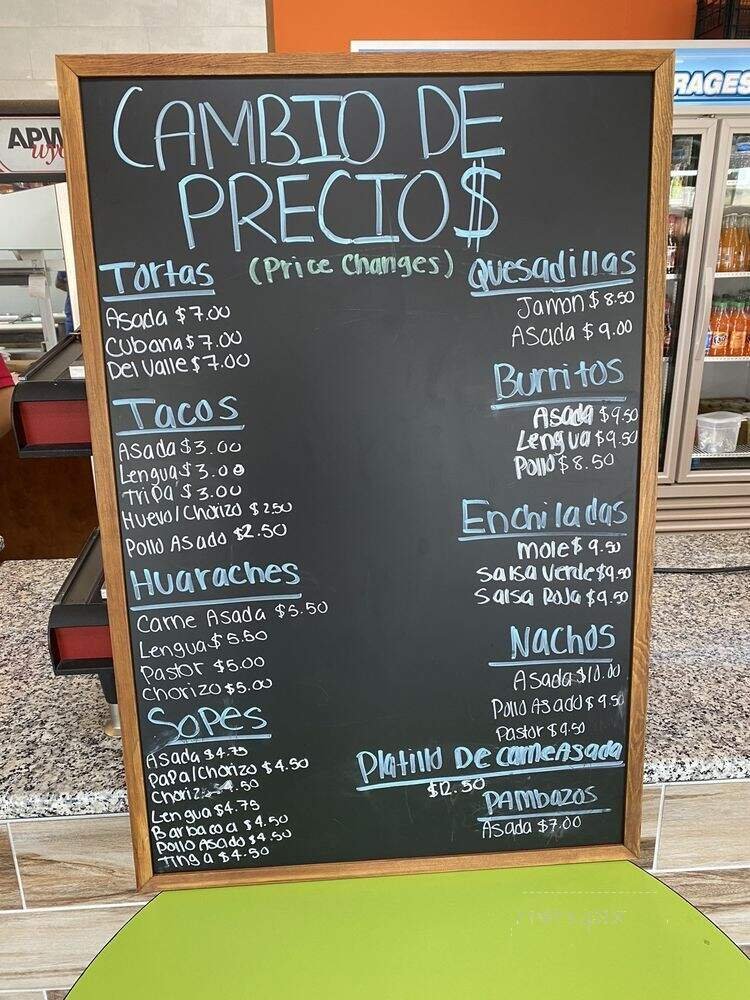 CAMBIO DE
PRECIO$
(Price Changes)
Tortas
Asada $7.00
Cubana $7.00
Del Valle $7.00
Tacos
Asada $3.00
Lengua $3.00
Tripa $3.00
Huevo/Chorizo $2.50
Pollo Asado $2.50
Huaraches
Carne Asada $5.50
Lengua $5.50
Pastor $5.00
Chorizo $5.00
Sopes
Asada $4.75
Papa/Chorizo $4.50
Lengua $4.75
Barbacoa $4.50
Pollo Asado $4.50
Tinga $4.50
Quesadillas
Jamon $8.50
Asada $9.00
Burritos
Asada $9.50
Lengua $9.50
Pollo $8.50
Enchiladas
Mole $9.50
Salsa Verde $9.50
Salsa Roja $9.50
Nachos
Asada $10.00
Pollo Asado $9.50
Pastor $9.50
Platillo De Carne Asada
$12.50
PAMbazos
Asada $7.00
RAGES
APW